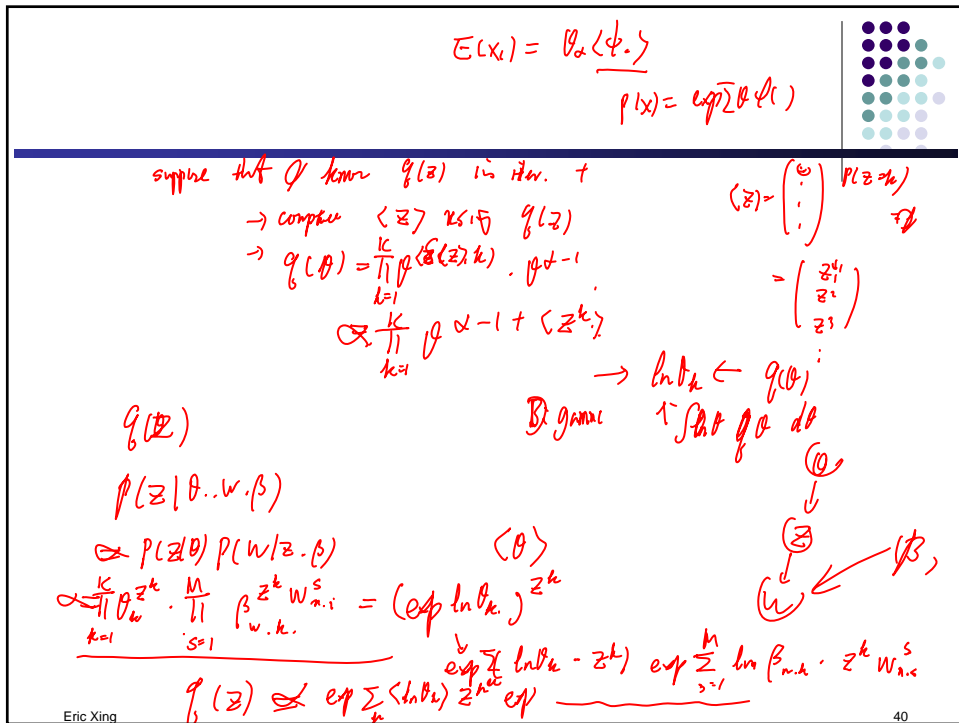 E(x_i) = θ_α⟨ϕ.⟩
p(x) = exp Σθϕ( )
suppose that I know q(z) is iter. t
→ compute ⟨z⟩ using q(z)
→ q(θ) = ∏_{k=1}^{K} θ^{⟨δ(z),k⟩} · θ^{α-1}
∝ ∏_{k=1}^{K} θ^{α-1+⟨z^k⟩}
⟨z⟩ = ( ) P(z=k)
= ( z^1 z^2 z^3 )
→ ln θ_k ← q(θ)
Di gamma ∫ ln θ q θ dθ
q(z)
p(z|θ..w.β)
∝ p(z|θ) p(w|z.β)
⟨θ⟩
θ
z
w
β
∝ ∏_{k=1}^{K} θ_k^{z^k} · ∏_{s=1}^{M} β_{w.k.}^{z^k w_{n.i}^s} = (exp ln θ_k.)^{z^k}
exp Σ( ln θ_k · z^k) exp Σ_{s=1}^{M} ln β_{n.k} · z^k w_{n.s}^s
q(z) ∝ exp Σ_k ⟨ln θ_k⟩ z^k exp
Eric Xing
40